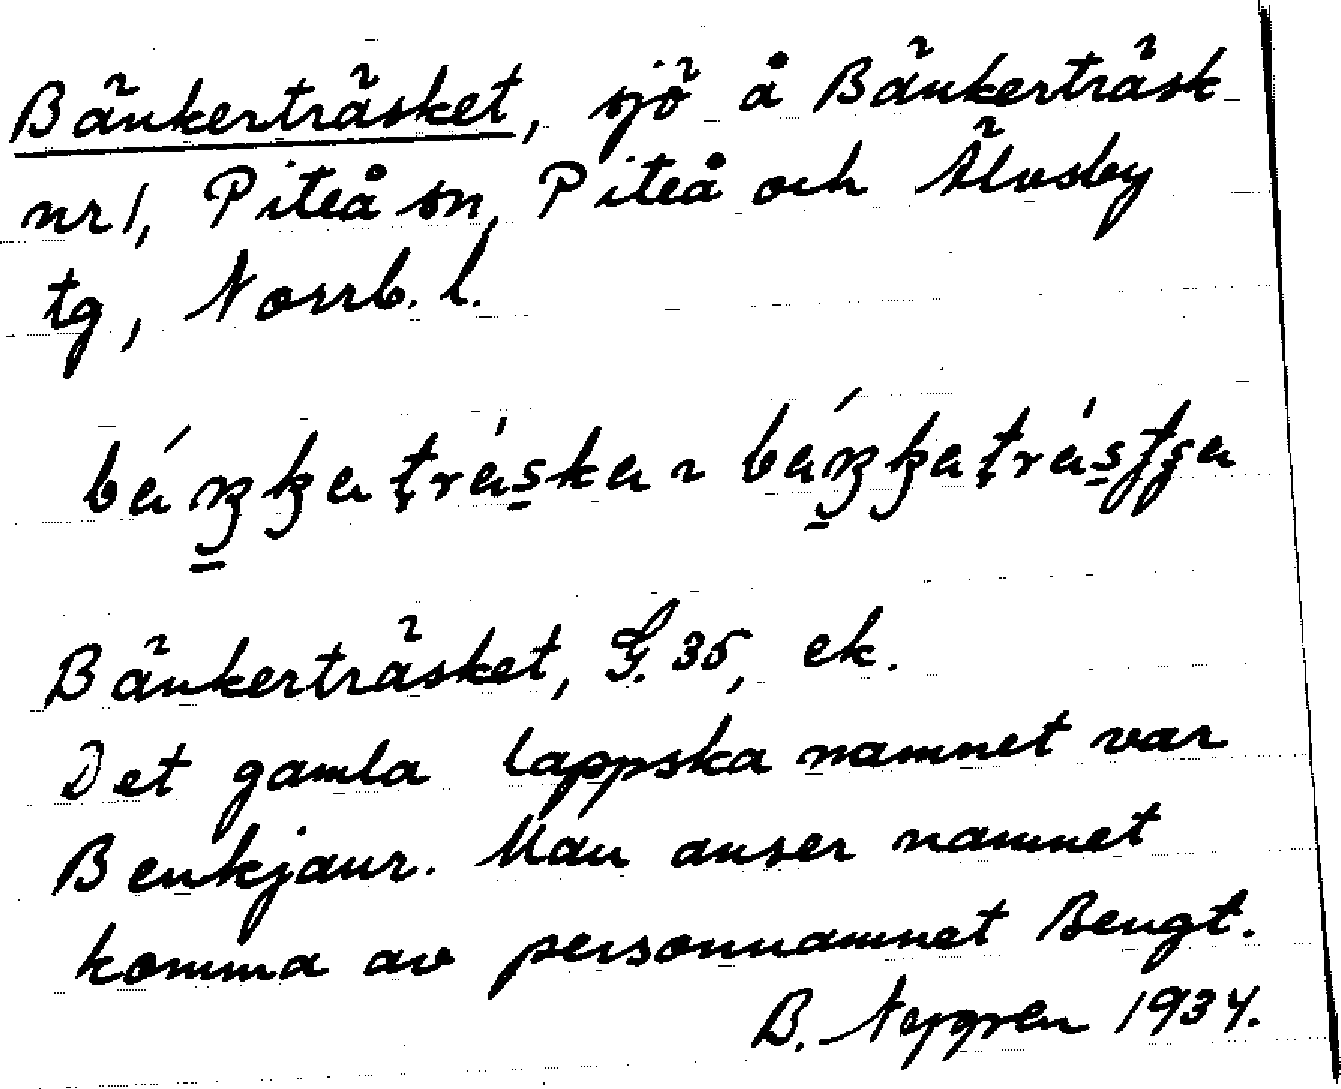 Bänkerträsket, sjö å Bänkerträsk
nr 1, Piteå sn, Piteå och Älvsby
tg, Norrb. l.
Bänkerträsket, G. 35, ek.
Det gamla lappska namnet var
Benkjaur. Man anser namnet
komma av personnamnet Bengt.
B. Nygren 1934.